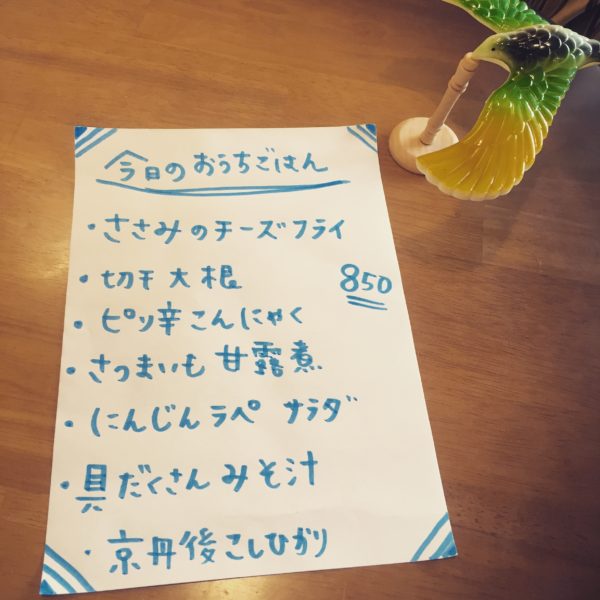 今日のおうちごはん
・ささみのチーズフライ
・切干大根
850
・ピリ辛こんにゃく
・さつまいも甘露煮
・にんじんラペ サラダ
・具だくさんみそ汁
・京丹後こしひかり